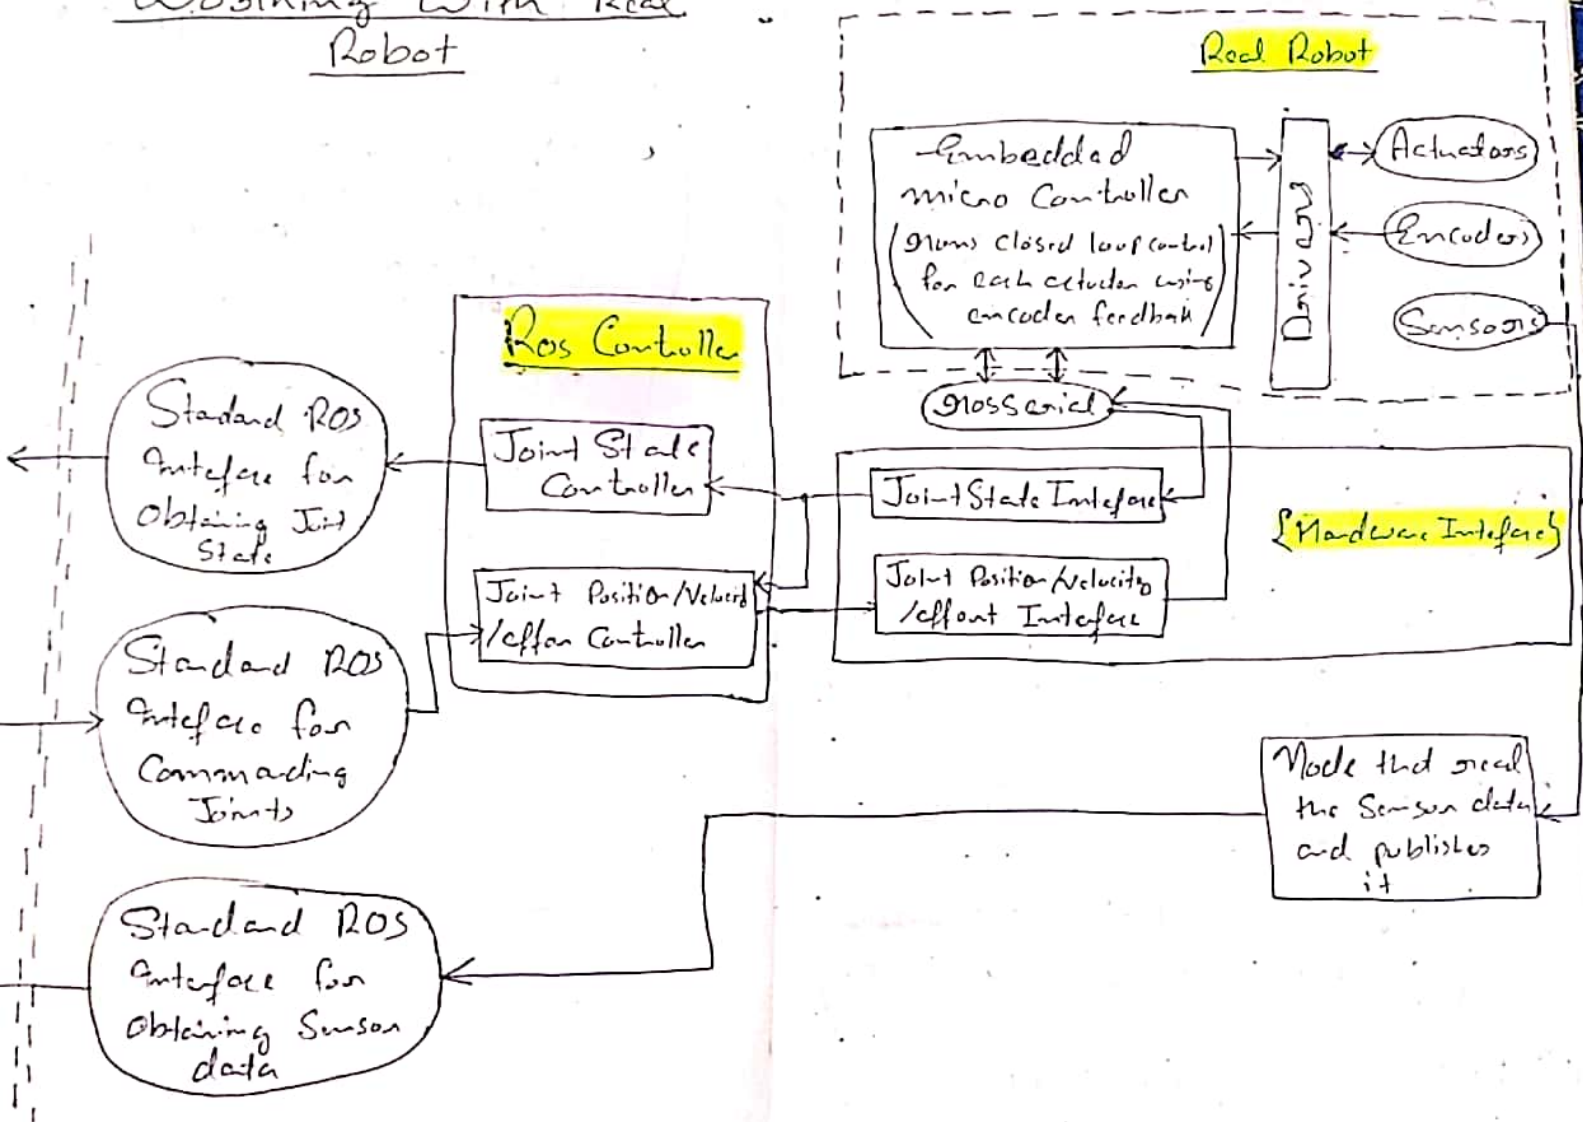 Working With Real
Robot
Real Robot
Embedded
micro Controller
(runs closed loop control
for each actuator using
encoder feedback)
Drivers
Actuators
Encoders
Sensors
rosserial
Ros Controller
Joint State
Controller
Joint Position/Velocity
/effor Controller
Joint State Interface
Joint Position/Velocity
/effort Interface
{Hardware Interface}
Standard ROS
Interface for
Obtaining Joint
State
Standard ROS
Interface for
Commanding
Joints
Standard ROS
Interface for
Obtaining Sensor
data
Node that read
the Sensor data
and publishes
it